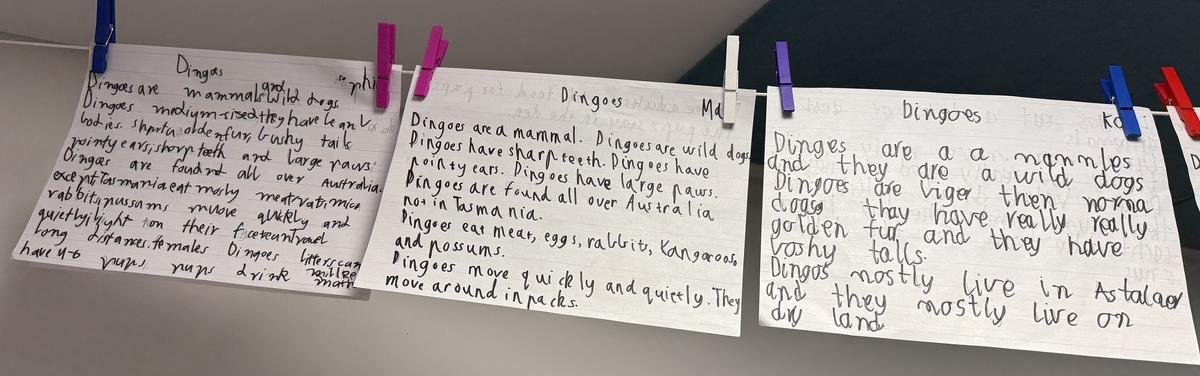 Dingoes
sophi
Dingoes are mammals and wild dogs.
Dingoes medium-sized they have lean
bodies. short golden fur, bushy tails
pointy ears, sharp teeth and large paws.
Dingoes are found all over Australia.
except Tasmania eat mosly meat rats, mice
rabbits, possams move quikly and
quietly light on their
long distances. females Dingoes litters can
have 4-6 pups pups drink
Dingoes
Ma
Dingoes are a mammal. Dingoes are wild dogs.
Dingoes have sharp teeth. Dingoes have
pointy ears. Dingoes have large paws.
Dingoes are found all over Australia
not in Tasmania.
Dingoes eat meat, eggs, rabbits, Kangaroos,
and possums.
Dingoes move quickly and quietly. They
move around in packs.
Dingoes
Ko
Dinges are a a mammles
and they are a wild dogs
Dingoes are viger then norma
dogs thay have really really
golden fur and they have
boshy talls.
Dingos mostly live in Astalaer
and they mostly live on
dry land